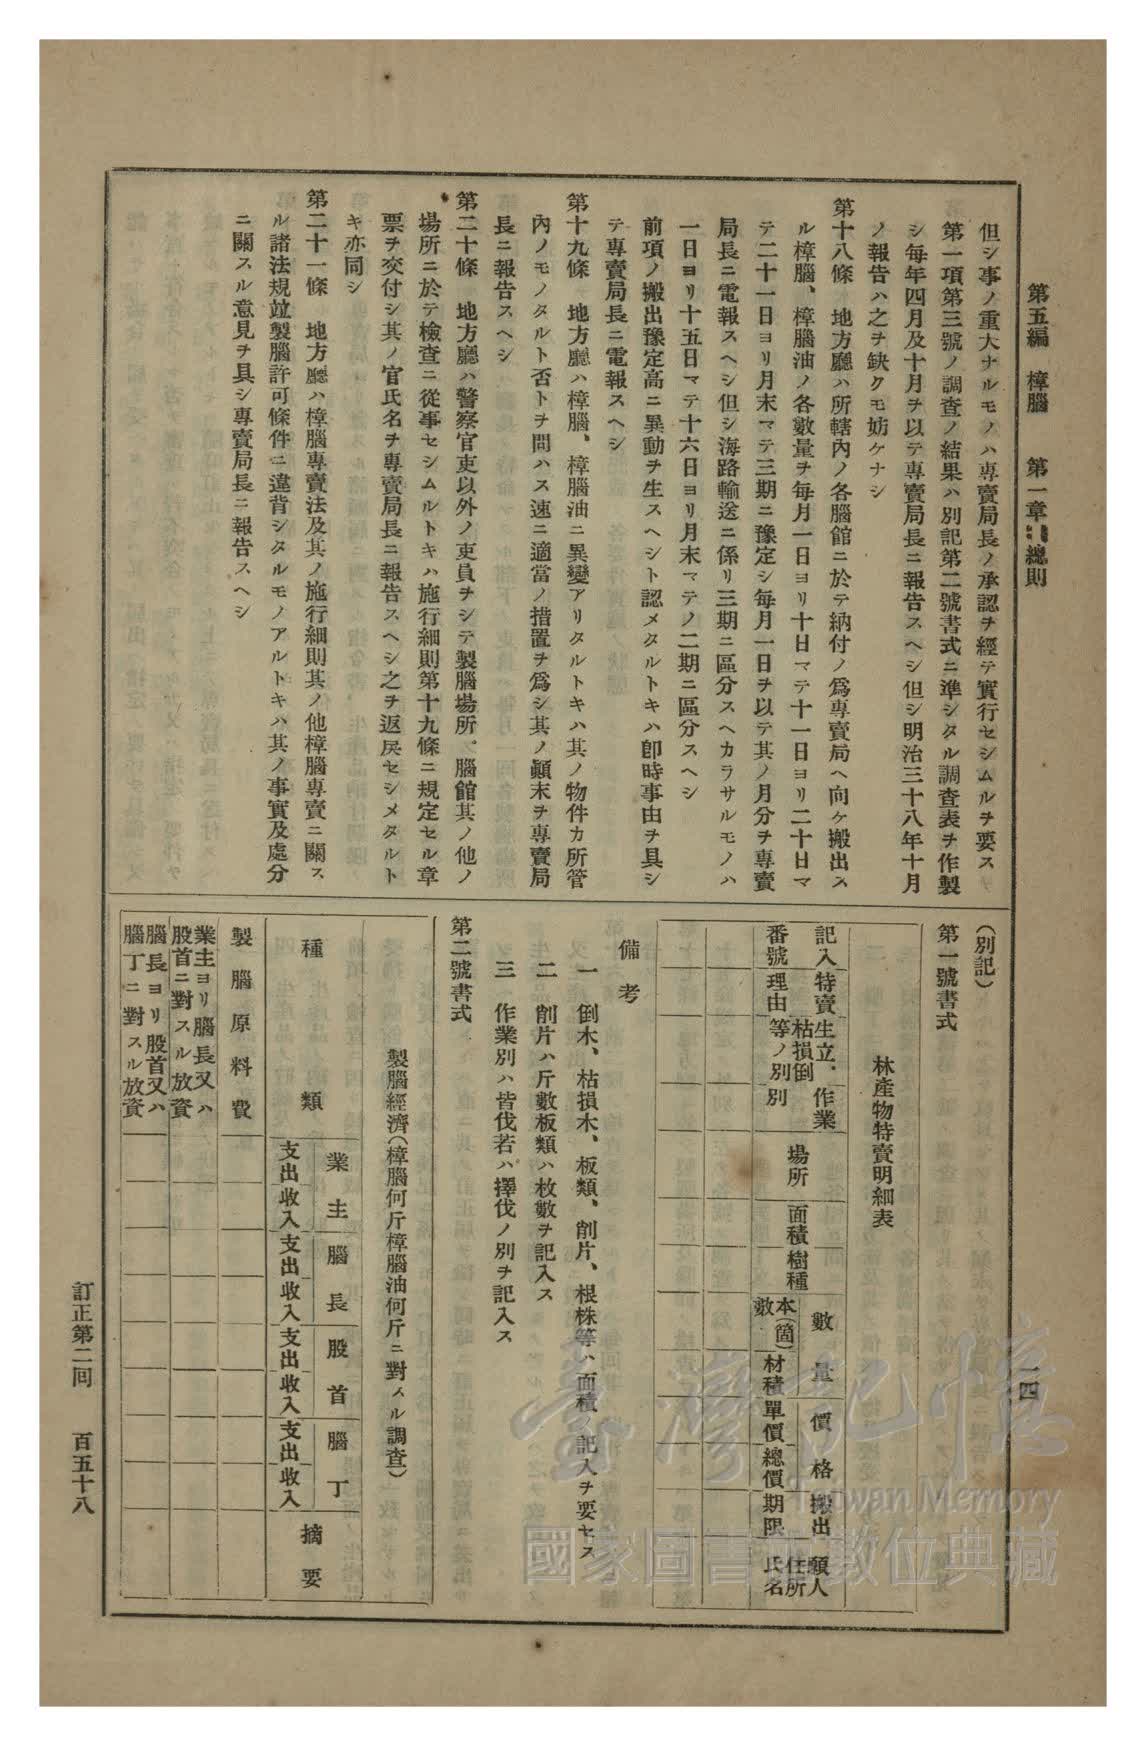 第五編 樟腦 第一章 總則
一四
但シ事ノ重大ナルモノハ專賣局長ノ承認ヲ經テ實行セシムルヲ要ス
第一項第三號ノ調査ノ結果ハ別記第二號書式ニ準シタル調査表ヲ作製
シ每年四月及十月ヲ以テ專賣局長ニ報告スヘシ但シ明治三十八年十月
ノ報告ハ之ヲ缺クモ妨ケナシ
第十八條 地方廳ハ所轄內ノ各腦館ニ於テ納付ノ爲專賣局ヘ向ケ搬出ス
ル樟腦、樟腦油ノ各數量ヲ每月一日ヨリ十日マテ十一日ヨリ二十日マ
テ二十一日ヨリ月末マテ三期ニ豫定シ每月一日ヲ以テ其ノ月分ヲ專賣
局長ニ電報スヘシ但シ海路輸送ニ係リ三期ニ區分スヘカラサルモノハ
一日ヨリ十五日マテ十六日ヨリ月末マテノ二期ニ區分スヘシ
前項ノ搬出豫定高ニ異動ヲ生スヘシト認メタルトキハ卽時事由ヲ具シ
テ專賣局長ニ電報スヘシ
第十九條 地方廳ハ樟腦、樟腦油ニ異變アリタルトキハ其ノ物件カ所管
內ノモノタルト否トヲ問ハス速ニ適當ノ措置ヲ爲シ其ノ顚末ヲ專賣局
長ニ報告スヘシ
第二十條 地方廳ハ警察官吏以外ノ吏員ヲシテ製腦場所、腦館其ノ他ノ
場所ニ於テ檢査ニ從事セシムルトキハ施行細則第十九條ニ規定セル章
票ヲ交付シ其ノ官氏名ヲ專賣局長ニ報告スヘシ之ヲ返戾セシメタルト
キ亦同シ
第二十一條 地方廳ハ樟腦專賣法及其ノ施行細則其ノ他樟腦專賣ニ關ス
ル諸法規竝製腦許可條件ニ違背シタルモノアルトキハ其ノ事實及處分
ニ關スル意見ヲ具シ專賣局長ニ報告スヘシ
(別記)
第一號書式
林產物特賣明細表
記入番號
特賣理由
生立、枯損倒等ノ別
作業別
場所
面積
樹種
數量
本(箇)數
材積
價格
單價
總價
搬出期限
願人住所氏名
備考
一 倒木、枯損木、板類、削片、根株等ハ面積ノ記入ヲ要セス
二 削片ハ斤數板類ハ枚數ヲ記入ス
三 作業別ハ皆伐若ハ擇伐ノ別ヲ記入ス
第二號書式
製腦經濟(樟腦何斤樟腦油何斤ニ對スル調査)
種類
業主
支出
收入
腦長
支出
收入
股首
支出
收入
腦丁
支出
收入
摘要
製腦原料費
業主ヨリ腦長又ハ
股首ニ對スル放資
腦長ヨリ股首又ハ
腦丁ニ對スル放資
訂正第二回 百五十八
臺灣記憶
Taiwan Memory
國家圖書館數位典藏